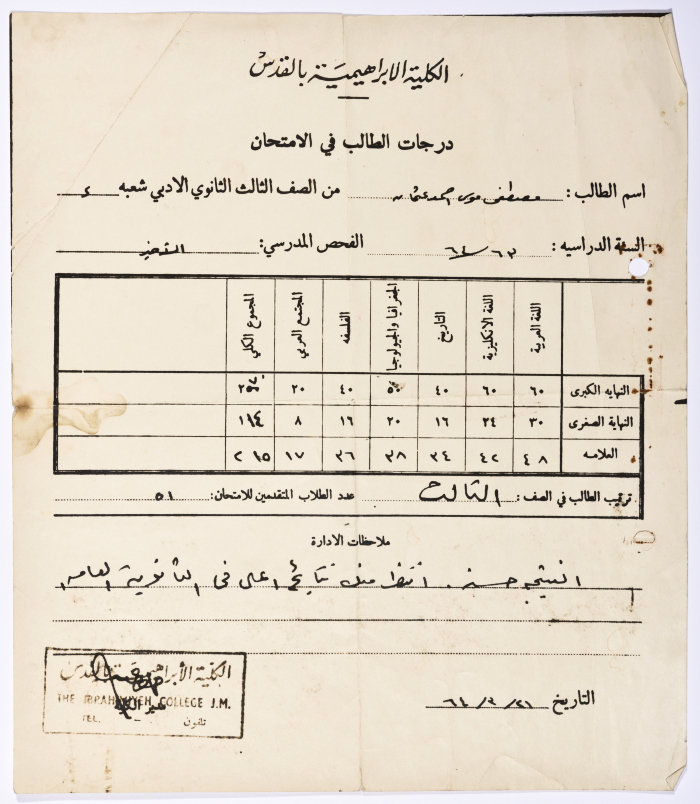 الكلية الابراهيمية بالقدس
درجات الطالب في الامتحان
اسم الطالب : مصطفى موسى احمد عثمان من الصف الثالث الثانوي الادبي شعبه
السنة الدراسيه : ٦٣ / ٦٤ الفحص المدرسي :
اللغة العربية اللغة الانكليزية التاريخ الجغرافيا والجيولوجيا الفلسفه المجتمع العربي المجموع الكلي
النهايه الكبرى ٦٠ ٦٠ ٤٠ ٥٠ ٤٠ ٢٠ ٢٧٠
النهاية الصغرى ٣٠ ٢٤ ١٦ ٢٠ ١٦ ٨ ١١٤
العلامه ٤٨ ٤٢ ٣٤ ٣٨ ٣٦ ١٧ ٢١٥
ترتيب الطالب في الصف : الثالث عدد الطلاب المتقدمين للامتحان : ٥١
ملاحظات الادارة
النتيجة حسنة . انتظر منك نتائج اعلى في الثانوية العامه
الكلية الابراهيمية بالقدس
THE IBRAHIMIYEH COLLEGE J.M.
TEL. تلفون
التاريخ ٢١ / ٣ / ٦٤